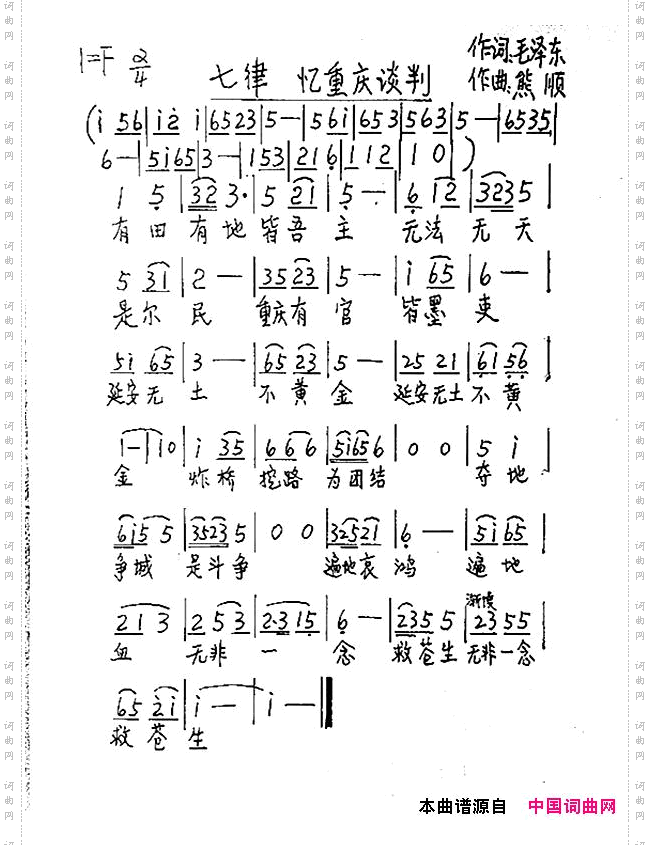 1=F 2/4
七律 忆重庆谈判
作词:毛泽东
作曲:熊顺
(i 56|i2 i|6523|5—|561|653|563|5—|6535|
6—|5i65|3—|153|216|112|10)
1 5|32 3·|5 21|5—|6 12|3235|
有田 有地 皆吾 主 无法 无天
5 31|2—|3523|5—|i 65|6—|
是尔 民 重庆有 官 皆墨 吏
5i 65|3—|65 23|5—|25 21|61 56|
延安无 土 不黄 金 延安无土 不黄
1—|10|i 35|6 6 6|5i656|0 0|5 i|
金 炸桥 挖路 为团结 夺地
6i5 5|3523 5|0 0|32521|6—|5i65|
争城 是斗争 遍地哀 鸿 遍地
213|253|2·315|6—|2355 5|23 55|
渐慢
血 无非 一 念 救苍生 无非一念
65 2i|i—|i—|
救苍 生
本曲谱源自 中国词曲网
词曲网